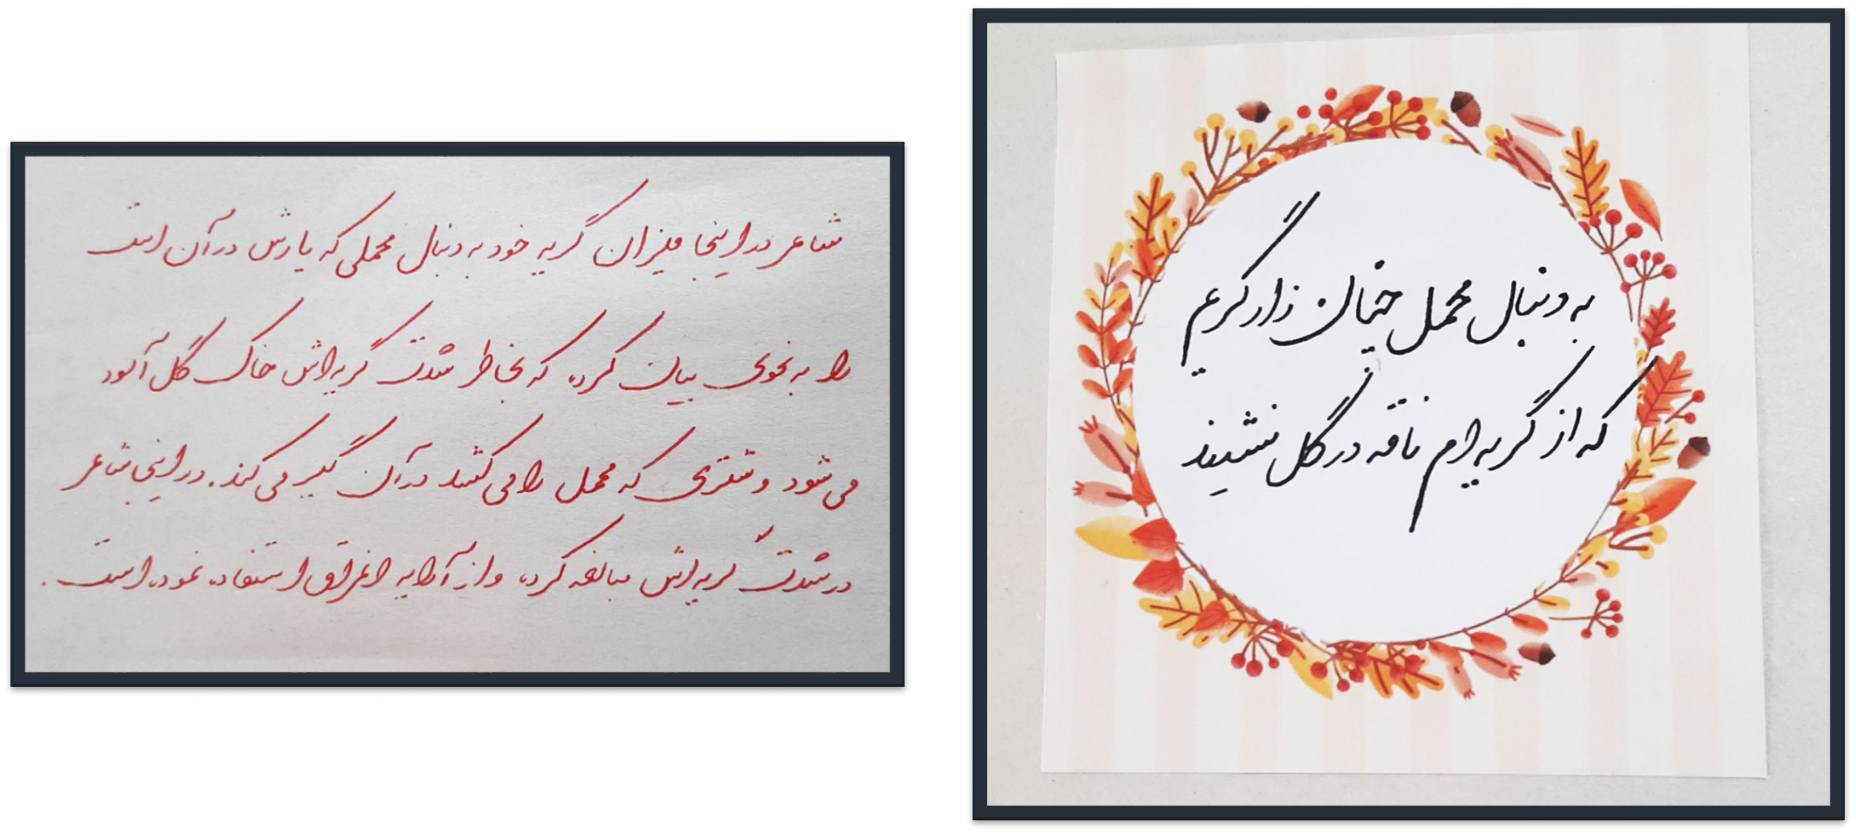 به دنبال محمل چنان زار گریم
که از گریه‌ام ناقه در گل نشیند
شاعر در اینجا میزان گریه خود به دنبال محملی که یارش در آن است
را به نحوی بیان کرده که بخاطر شدت گریه‌اش خاک گل آلود
می‌شود و شتری که محمل را می‌کشد در آن گیر می‌کند. در اینجا شاعر
در شدت گریه‌اش مبالغه کرده و از آرایه اغراق استفاده نموده است.